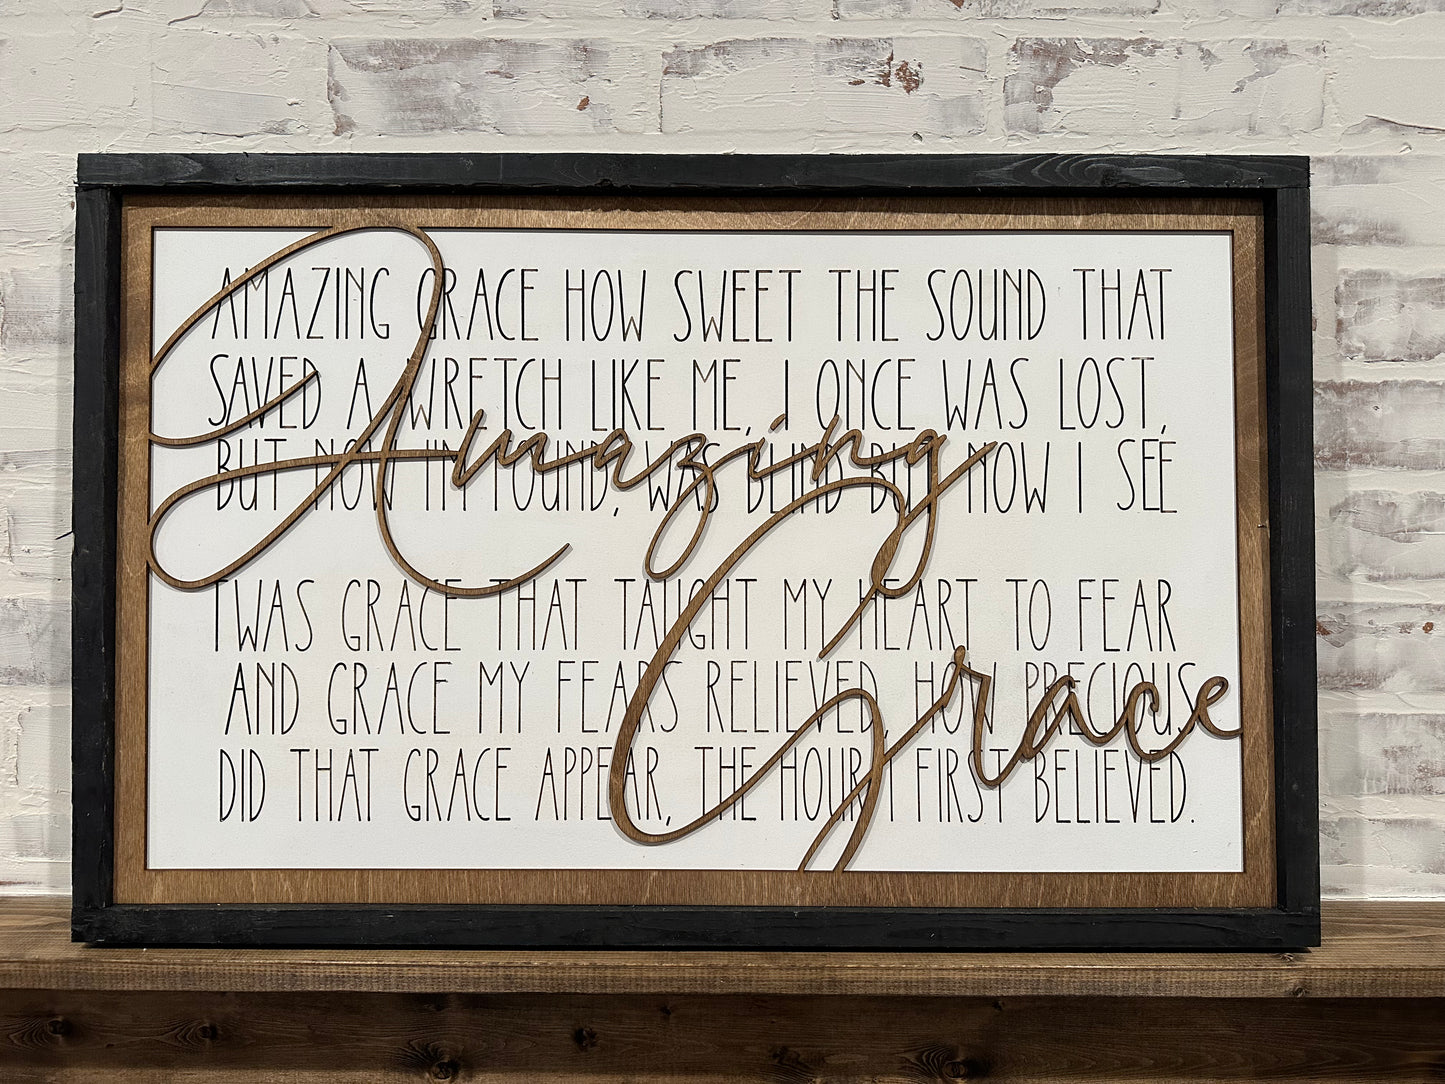 AMAZING GRACE HOW SWEET THE SOUND THAT
SAVED A WRETCH LIKE ME, I ONCE WAS LOST,
BUT NOW I'M FOUND, WAS BLIND BUT NOW I SEE
TWAS GRACE THAT TAUGHT MY HEART TO FEAR
AND GRACE MY FEARS RELIEVED, HOW PRECIOUS
DID THAT GRACE APPEAR, THE HOUR I FIRST BELIEVED.
Amazing
Grace